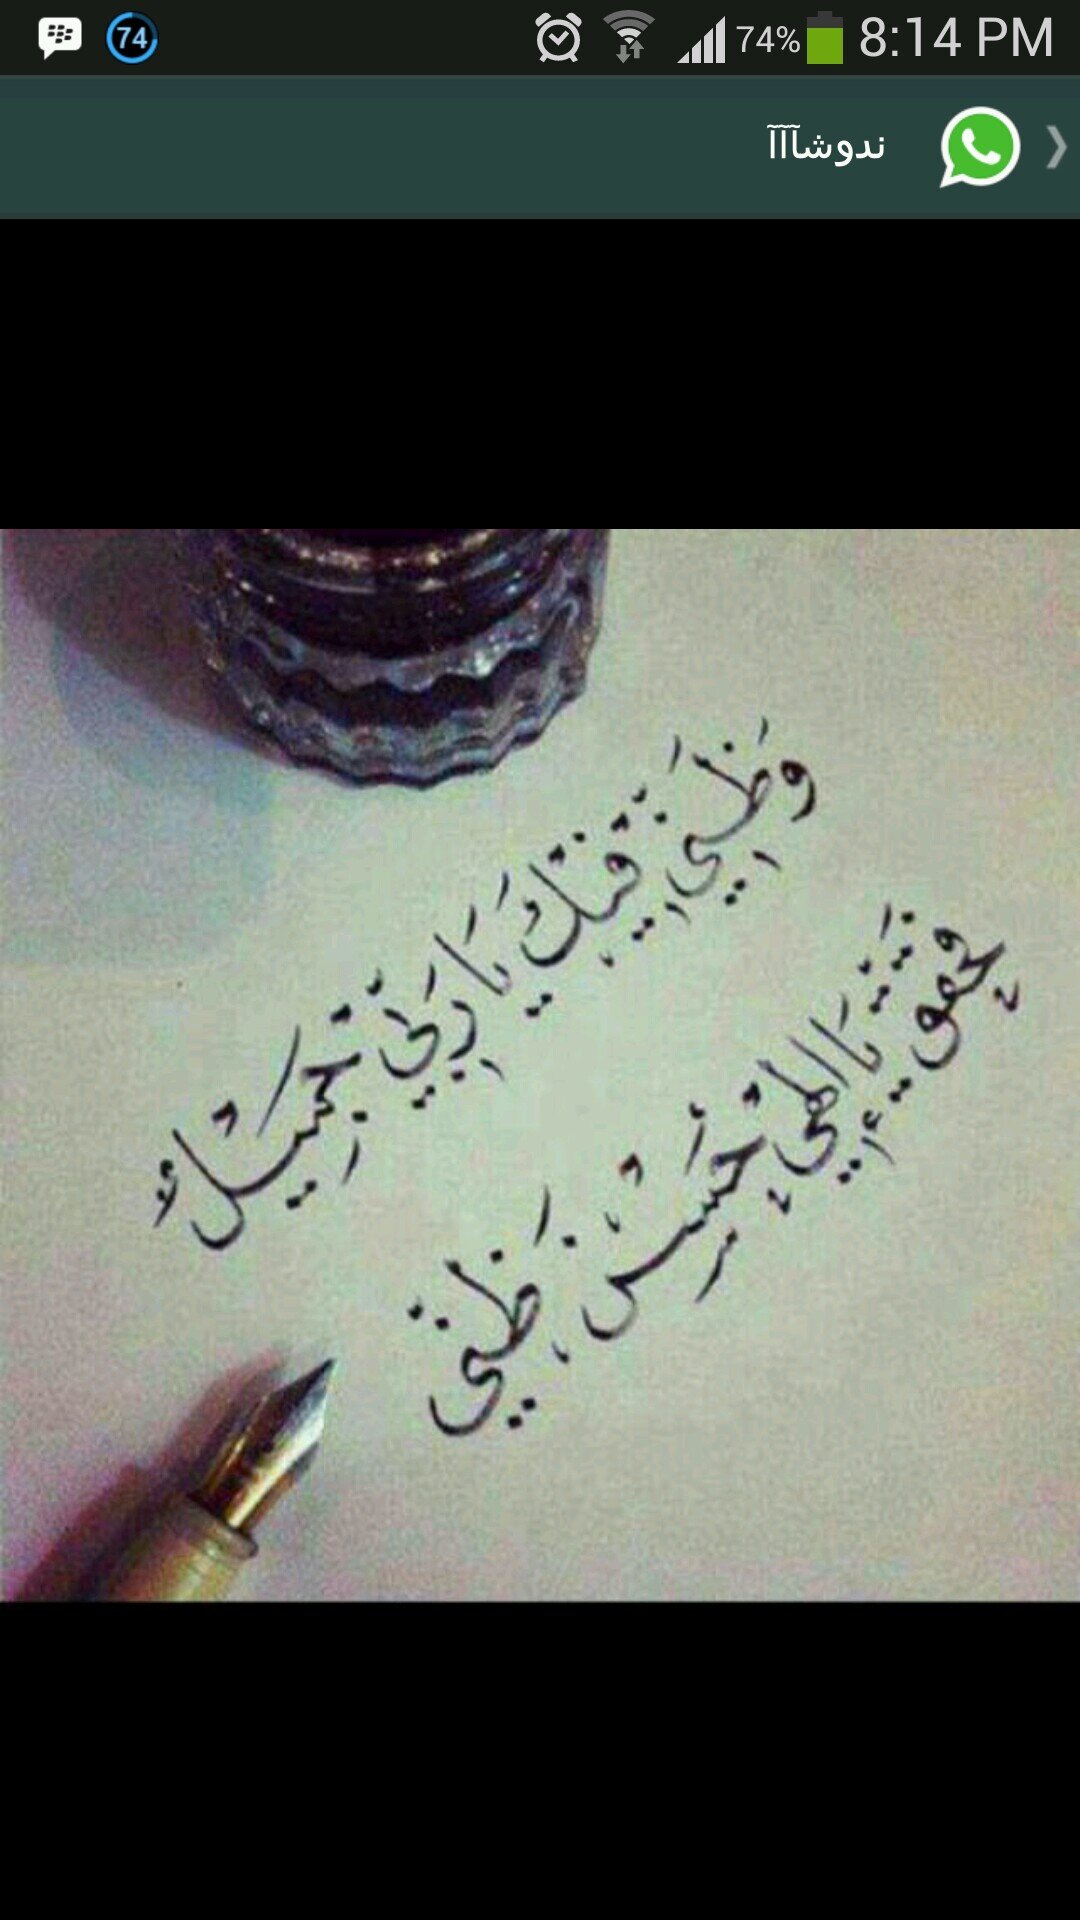 74 74% 8:14 PM
ندوشآآآ
وَظَنِّي فِيْكَ يَا رَبِّي جَمِيْلٌ
فَحَقِّقْ يَا إِلٰهِي حُسْنَ ظَنِّي